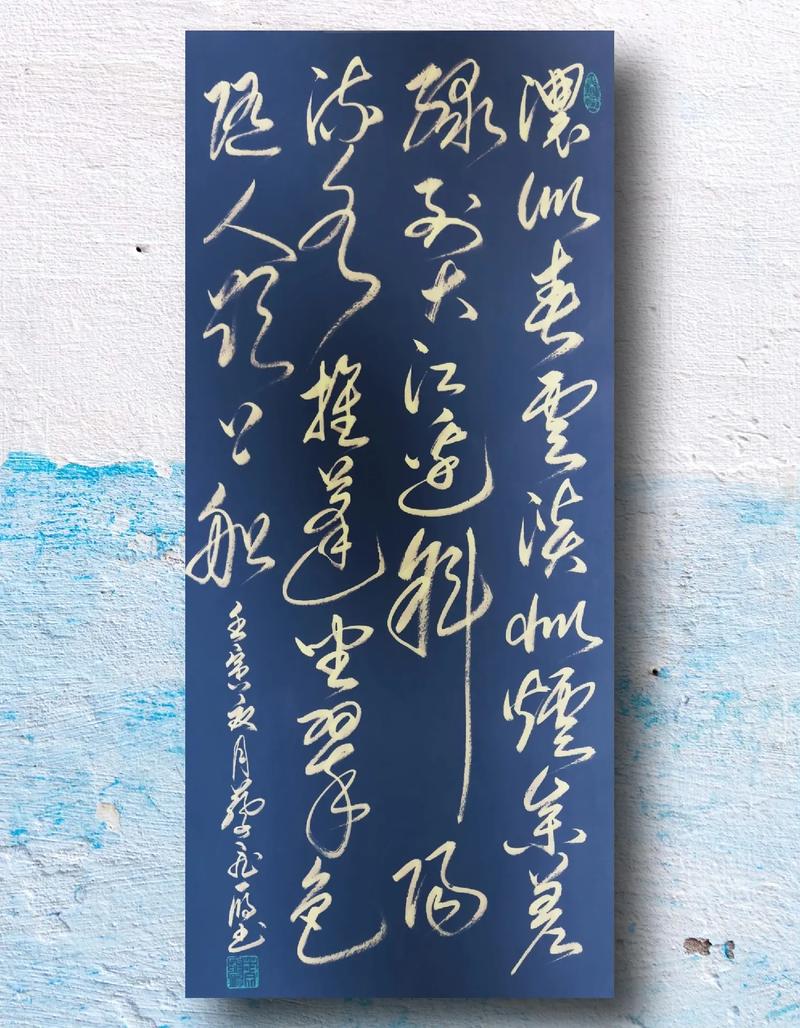 濃似春雲淡似煙參差
綠到大江邊斜陽
流水推篷坐翠色
隨人欲上船
壬寅秋月蔡飛雁書